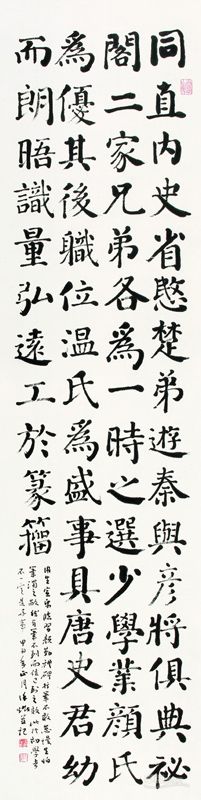 同直内史省愍楚弟遊秦與彥將俱典祕
閣二家兄弟各為一時之選少學業顏氏
為優其後職位温氏為盛事具唐史君幼
而朗晤識量弘遠工於篆籀